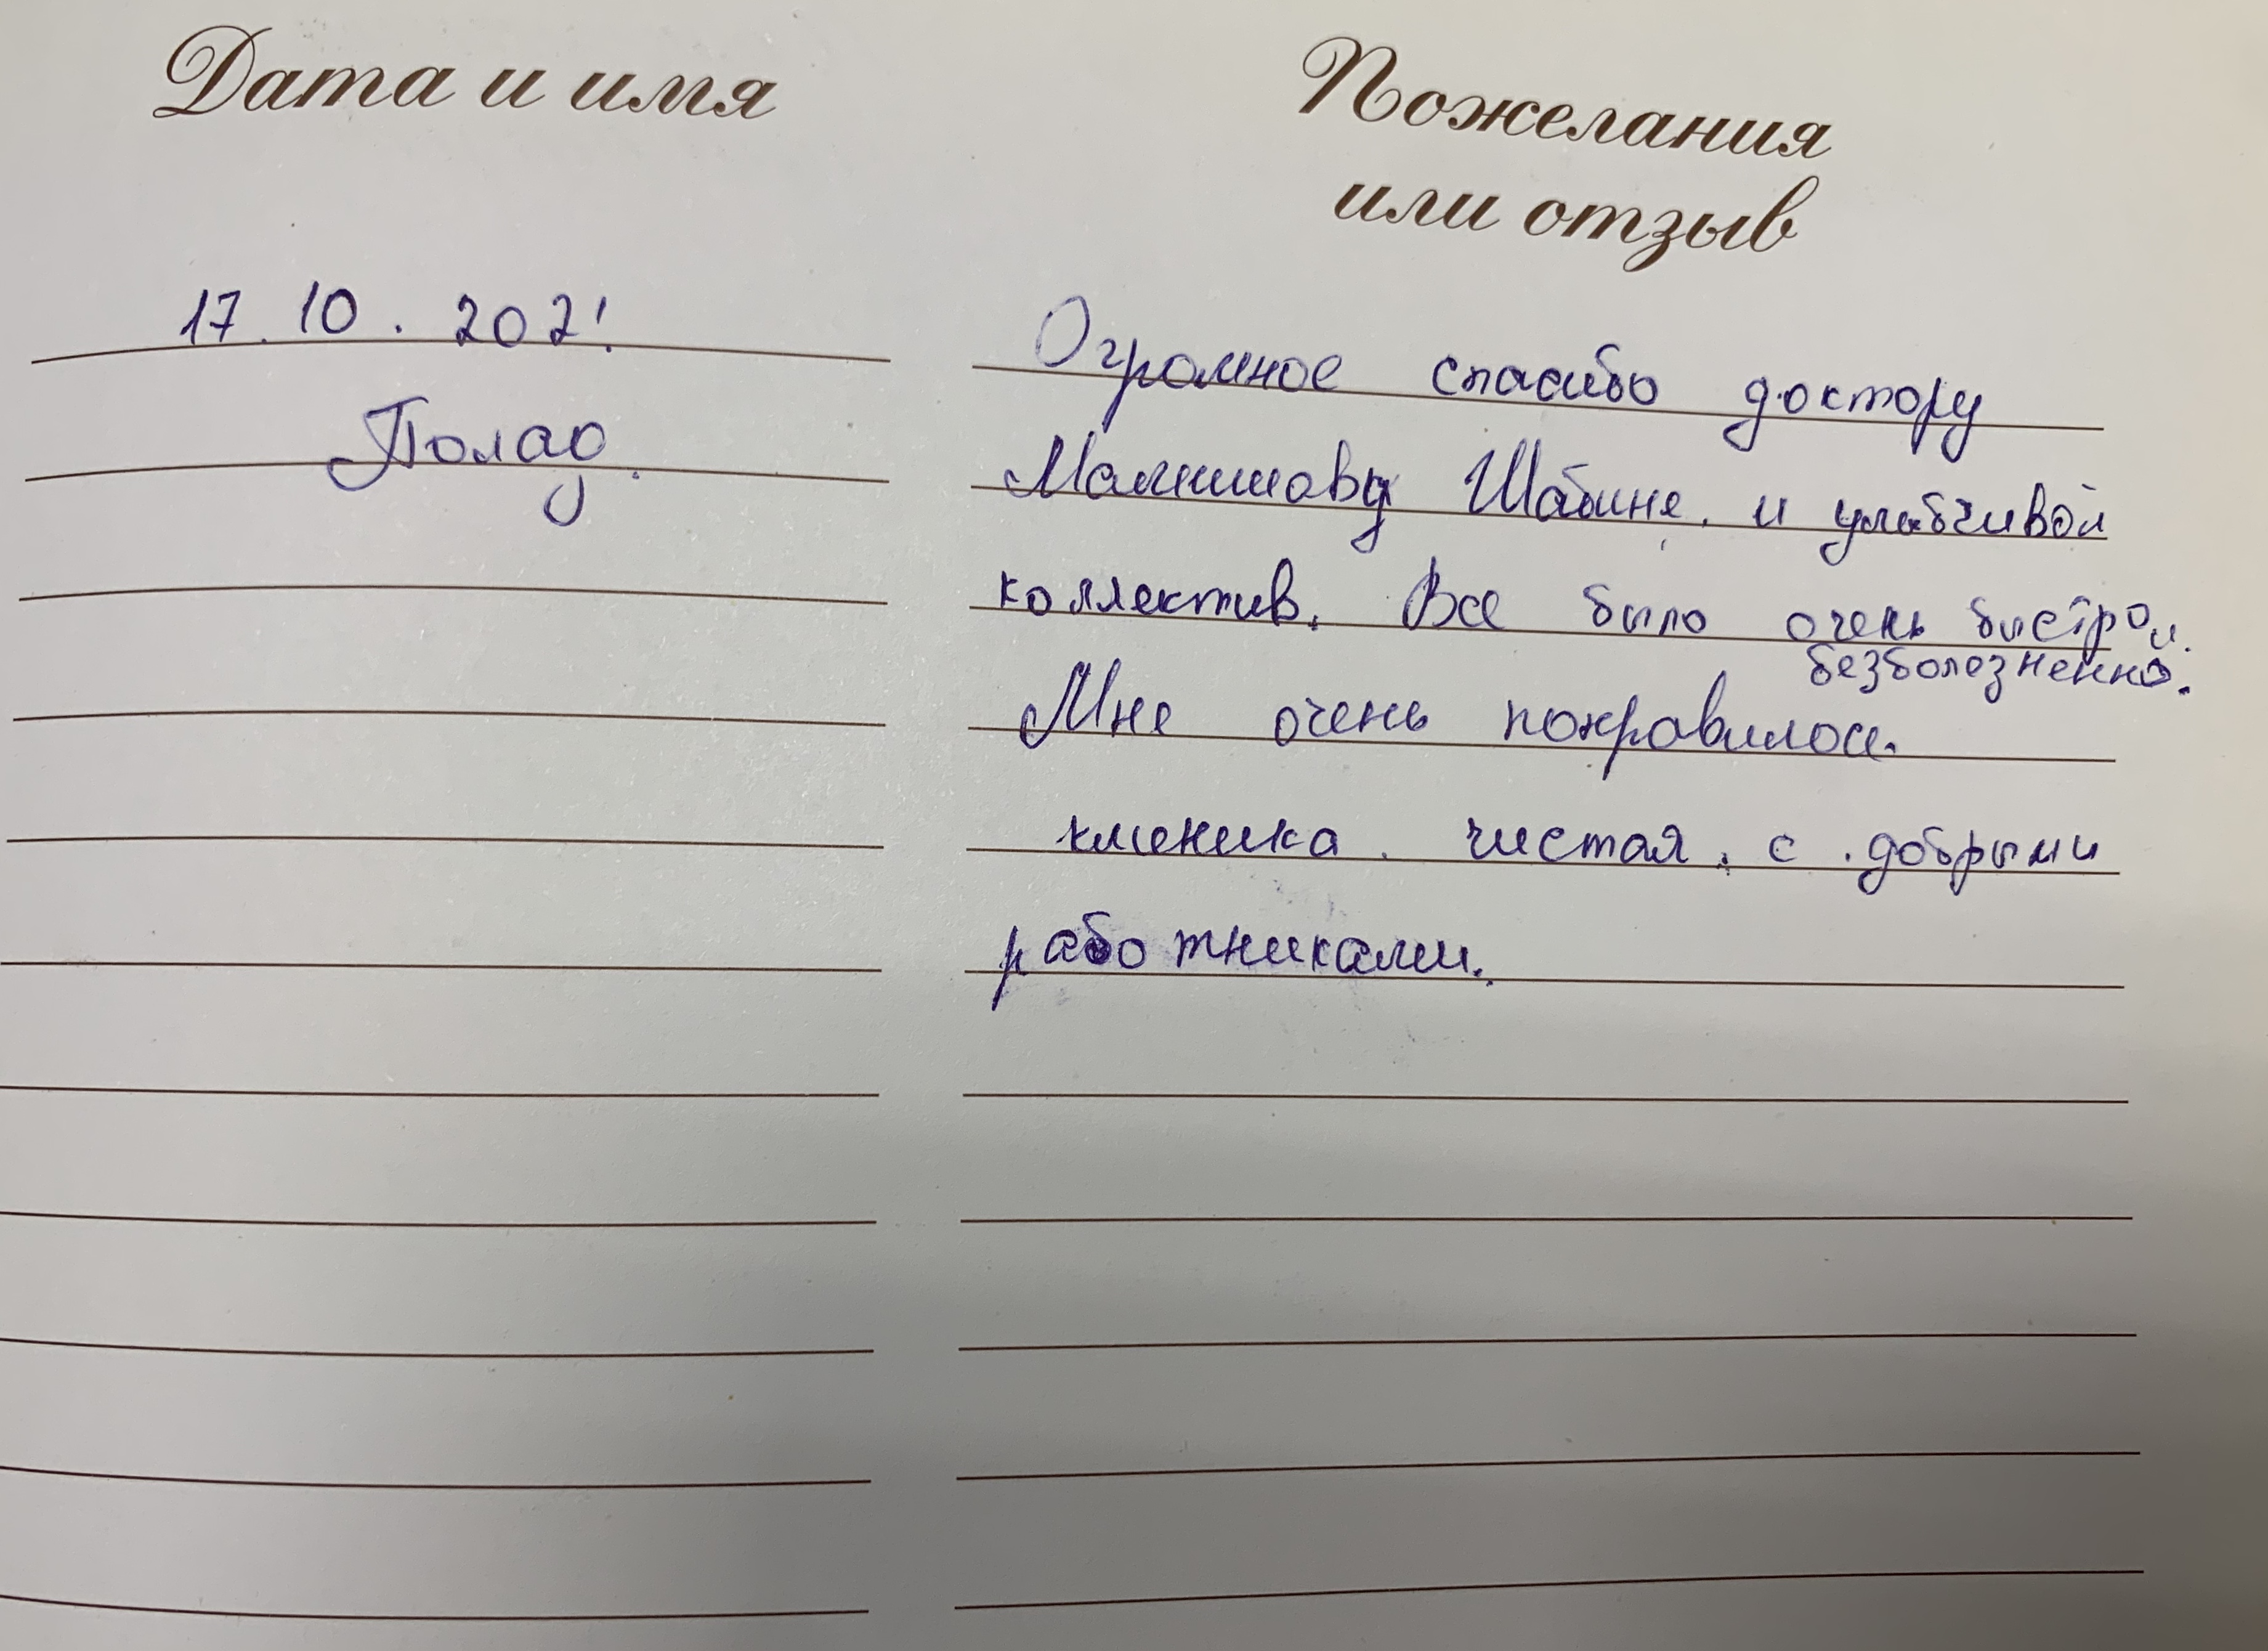 Дата и имя
Пожелания
или отзыв
17.10.2021
Полад.
Огромное спасибо доктору
Шабине. и улабчивой
коллектив. Все было очень быстро и.
безболезненно.
Мне очень понравилось.
клиника. чистая, с добрыми
работниками.